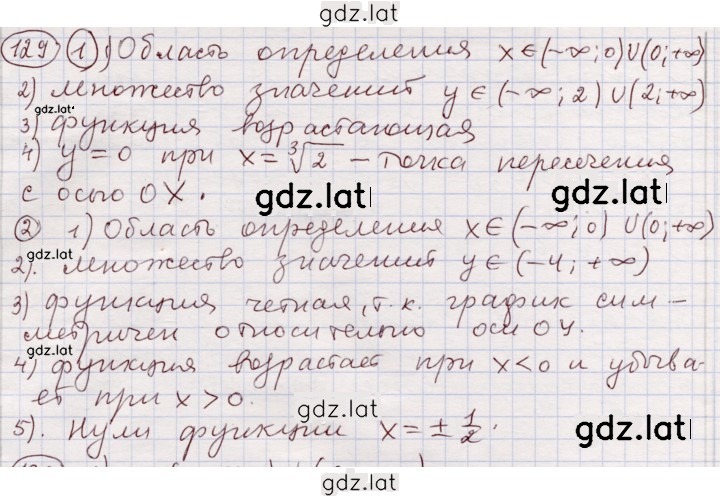 gdz.lat
129 1) 1) Область определения x∈(-∞;0)∪(0;+∞)
2) множество значений y∈(-∞;2)∪(2;+∞)
gdz.lat
3) функция возрастающая
4) y=0 при x=∛2 – точка пересечения
с осью OX.
gdz.lat
gdz.lat
2 1) Область определения x∈(-∞;0)∪(0;+∞)
2). множество значений y∈(-4;+∞)
gdz.lat
3) функция четная, т.к. график сим-
метричен относительно оси OY.
gdz.lat
4) функция возрастает при x<0 и убыва-
ет при x>0.
gdz.lat
5). Нули функции x=±1/2.
gdz.lat
gdz.lat